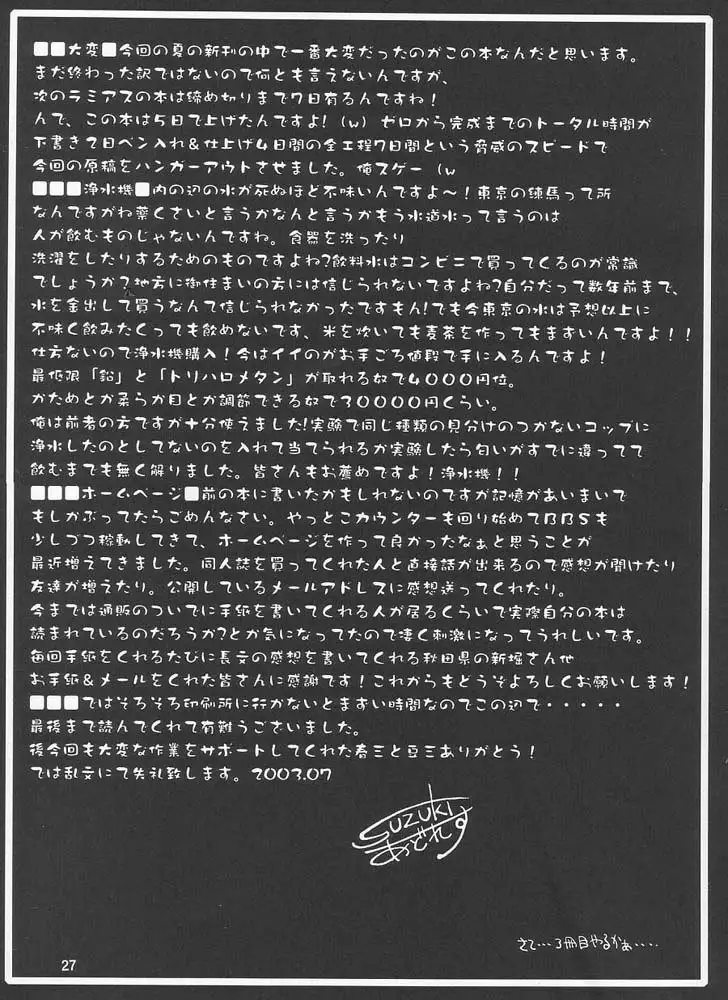 ■■大変■今回の夏の新刊の中で一番大変だったのがこの本なんだと思います。
まだ終わった訳ではないので何とも言えないんですが、
次のラミアスの本は締め切りまで7日有るんですね!
んで、この本は5日で上げたんですよ! (w) ゼロから完成までのトータル時間が
下書き2日ペン入れ&仕上げ4日間の全工程7日間という脅威のスピードで
今回の原稿をハンガーアウトさせました。俺スゲー (w
■■■浄水機■内の辺の水が死ぬほど不味いんですよ~!東京の練馬って所
なんですがね薬くさいと言うかなんと言うかもう水道水って言うのは
人が飲むものじゃないんですね。食器を洗ったり
洗濯をしたりするためのものですよね?飲料水はコンビニで買ってくるのが常識
でしょうか?地方に御住まいの方には信じられないですよね?自分だって数年前まで、
水を金出して買うなんて信じられなかったですもん!でも今東京の水は予想以上に
不味く飲みたくっても飲めないです、米を炊いても麦茶を作ってもまずいんですよ!!
仕方ないので浄水機購入!今はイイのがお手ごろ値段で手に入るんですよ!
最低限「鉛」と「トリハロメタン」が取れる奴で4000円位。
かためとか柔らか目とか調節できる奴で30000円くらい。
俺は前者の方ですが十分使えました!実験で同じ種類の見分けのつかないコップに
浄水したのとしてないのを入れて当てられるか実験したら匂いがすでに違ってて
飲むまでも無く解りました。皆さんもお薦めですよ!浄水機!!
■■■ホームページ■前の本に書いたかもしれないのですが記憶があいまいで
もしかぶってたらごめんなさい。やっとこカウンターも回り始めてBBSも
少しづつ稼動してきて、ホームページを作って良かったなぁと思うことが
最近増えてきました。同人誌を買ってくれた人と直接話が出来るので感想が聞けたり
友達が増えたり。公開しているメールアドレスに感想送ってくれたり。
今までは通販のついでに手紙を書いてくれる人が居るくらいで実際自分の本は
読まれているのだろうか?とか気になってたので凄く刺激になってうれしいです。
毎回手紙をくれるたびに長文の感想を書いてくれる秋田県の新堀さん他
お手紙&メールをくれた皆さんに感謝です!これからもどうぞよろしくお願いします!
■■■ではそろそろ印刷所に行かないとまずい時間なのでこの辺で・・・・・
最後まで読んでくれて有難うございました。
後今回も大変な作業をサポートしてくれた春三と豆三ありがとう!
では乱文にて失礼致します。2003.07
SUZUKI
あどれす
さて…3冊目やるかぁ・・・・
27